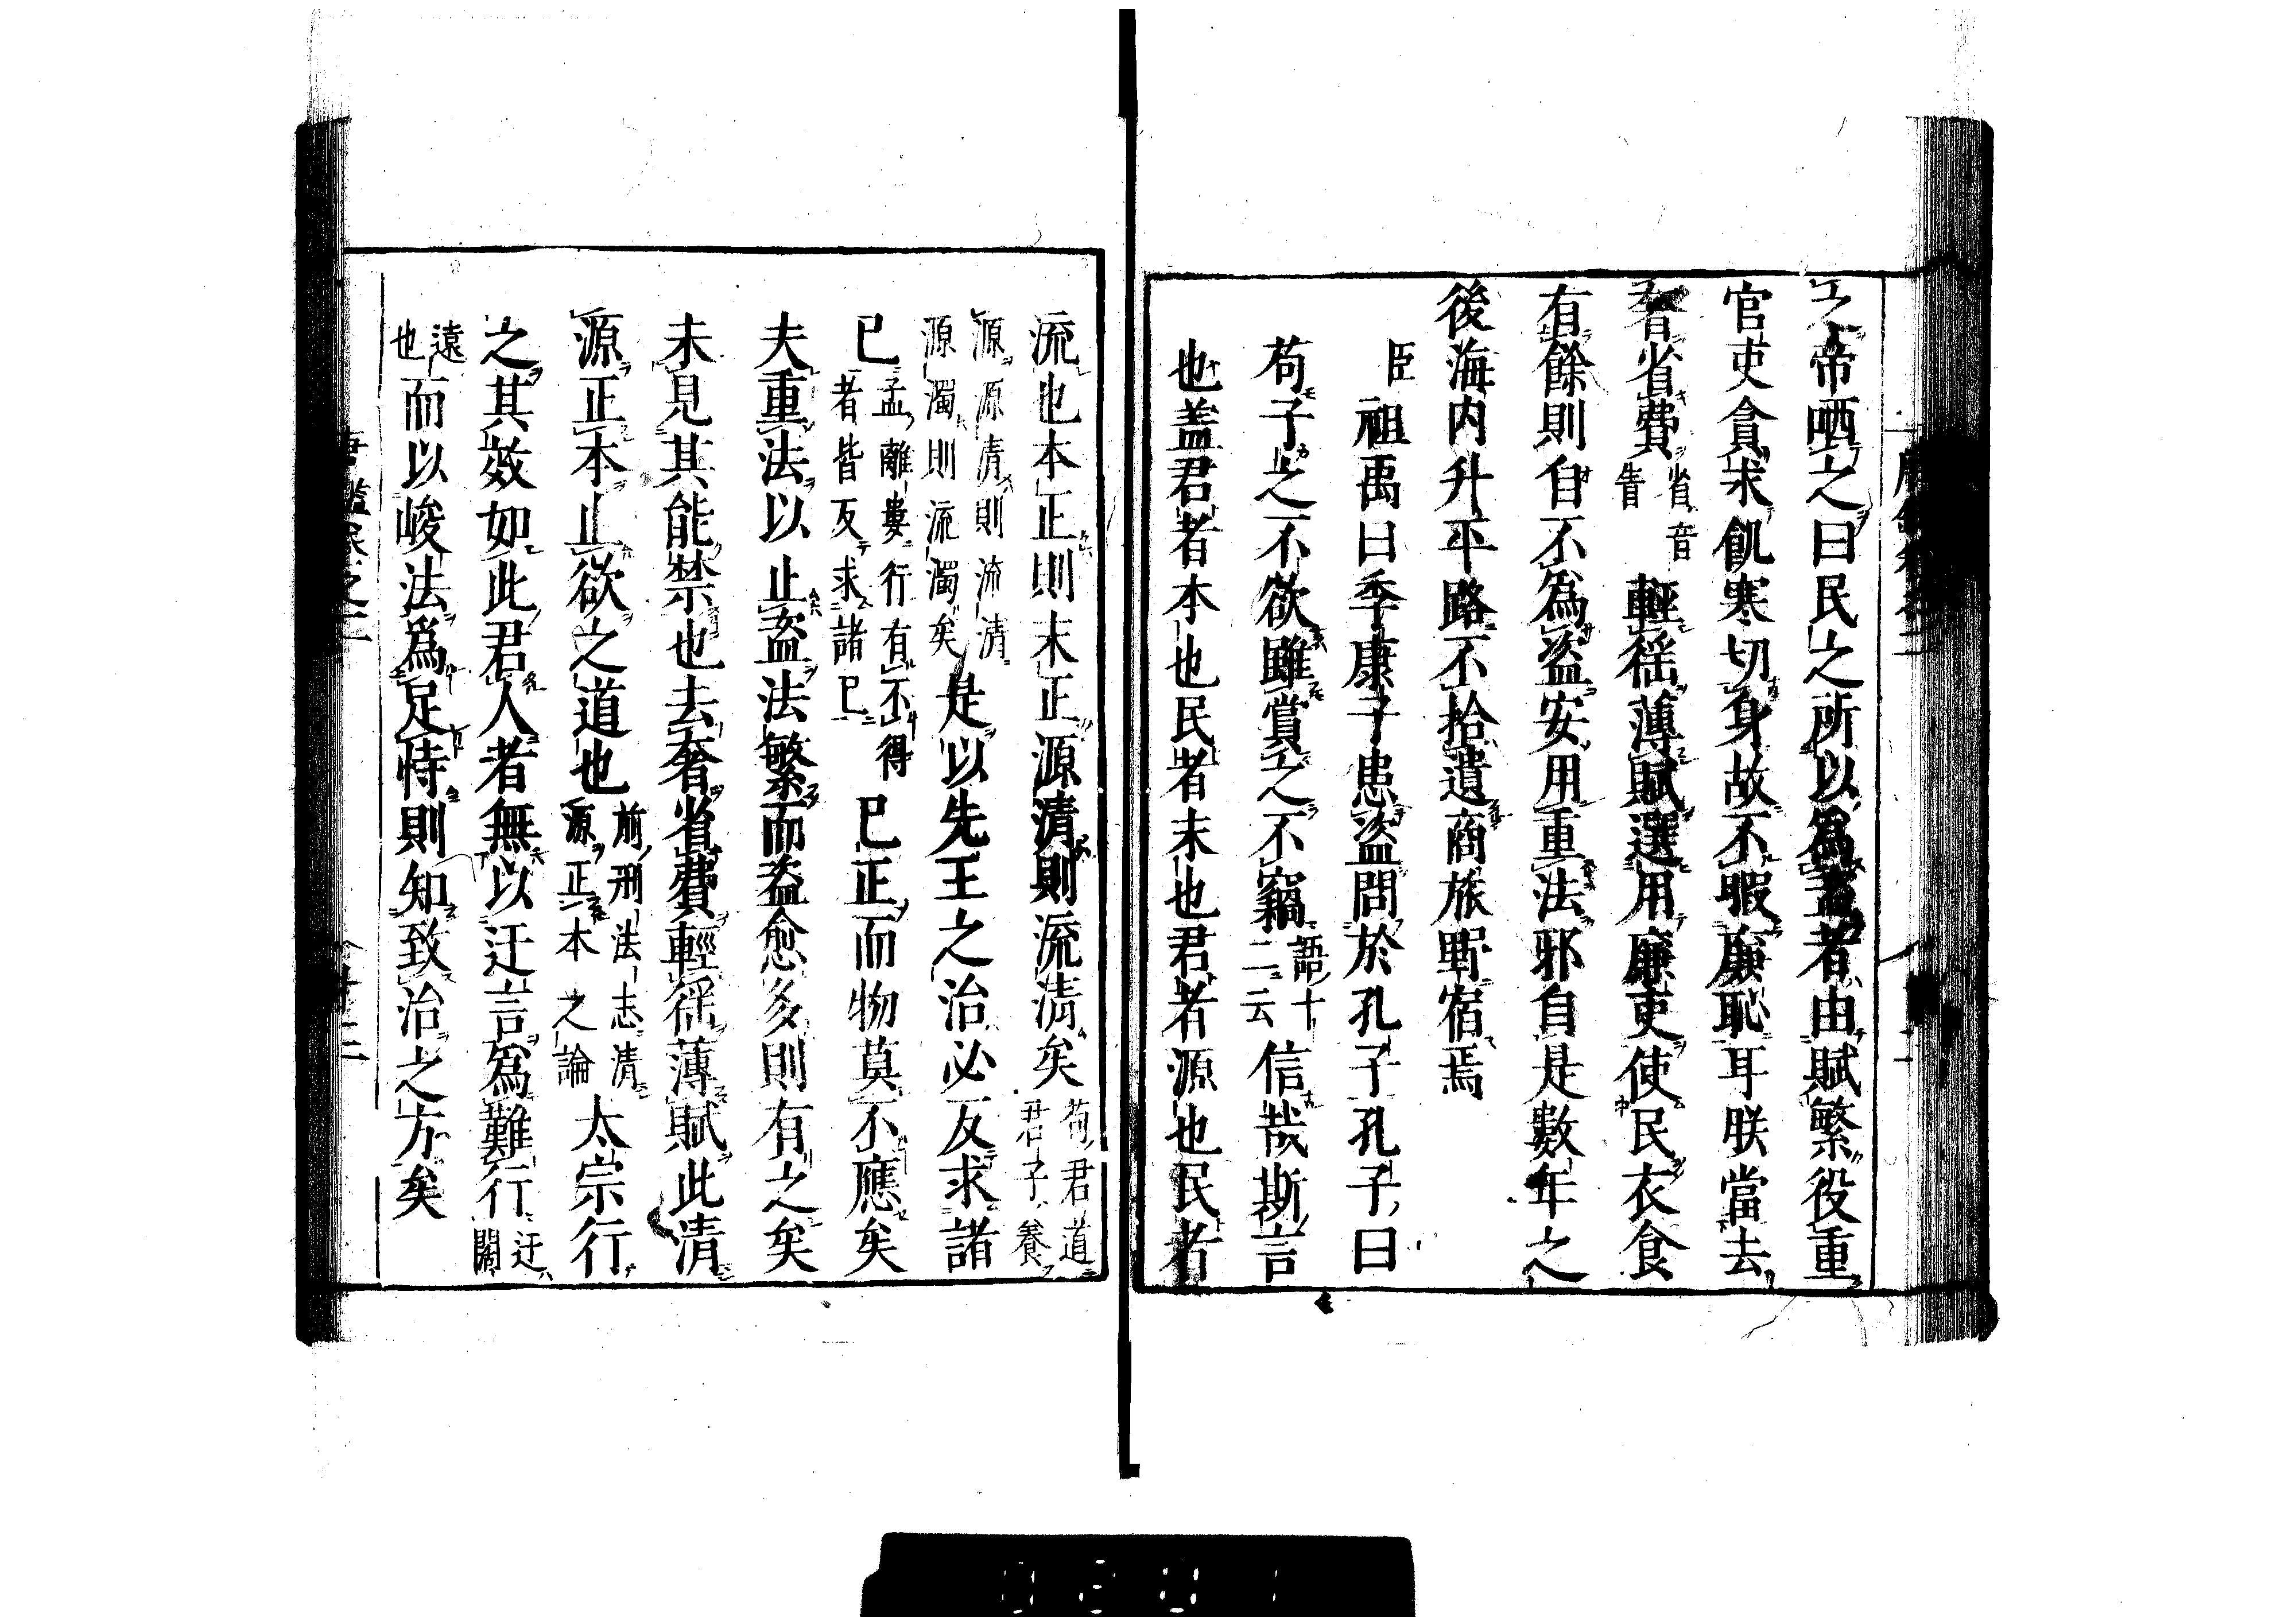 之帝哂之曰民之所以爲盗者由賦繁役重
官吏貪求飢寒切身故不暇廉恥耳朕當去
奢省費省音眚輕徭薄賦選用廉吏使民衣食
有餘則自不爲盗安用重法邪自是數年之
後海内升平路不拾遺商旅野宿焉
臣祖禹曰季康子患盗問於孔子孔子曰
苟子之不欲雖賞之不竊語十二云信哉斯言
也盖君者本也民者末也君者源也民者
流也本正則末正源清則流清矣荀君道君子養
源源清則流清源濁則流濁矣是以先王之治必反求諸
已孟離婁行有不得者皆反求諸已已正而物莫不應矣
夫重法以止盗法繁而盗愈多則有之矣
未見其能禁也去奢省費輕徭薄賦此清
源正本止欲之道也前刑法志清源正本之論太宗行
之其效如此君人者無以迂言爲難行迂闊
遠也而以峻法爲足恃則知致治之方矣
唐鑑卷之二